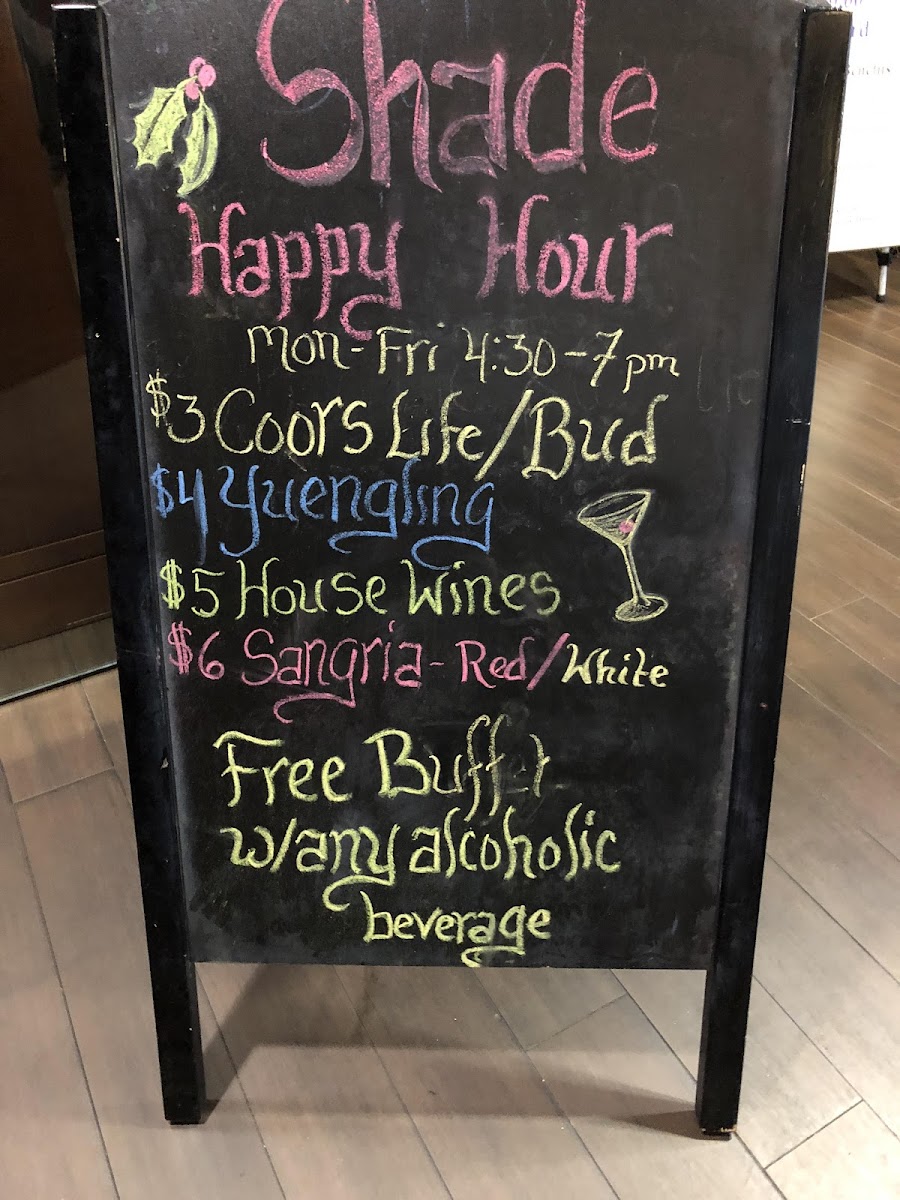 Shade
Happy Hour
Mon-Fri 4:30-7pm
$3 Coors Life/Bud
$4 Yuengling
$5 House Wines
$6 Sangria-Red/White
Free Buffet
w/any alcoholic
beverage